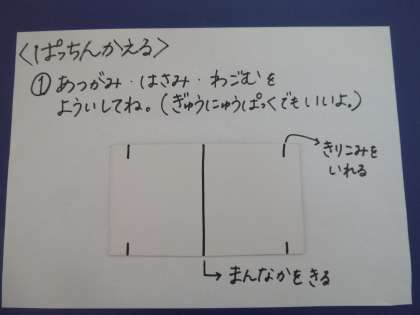 <ぱっちんかえる>
① あつがみ・はさみ・わごむを
よういしてね。(ぎゅうにゅうぱっくでもいいよ。)
きりこみを
いれる
まんなかをきる